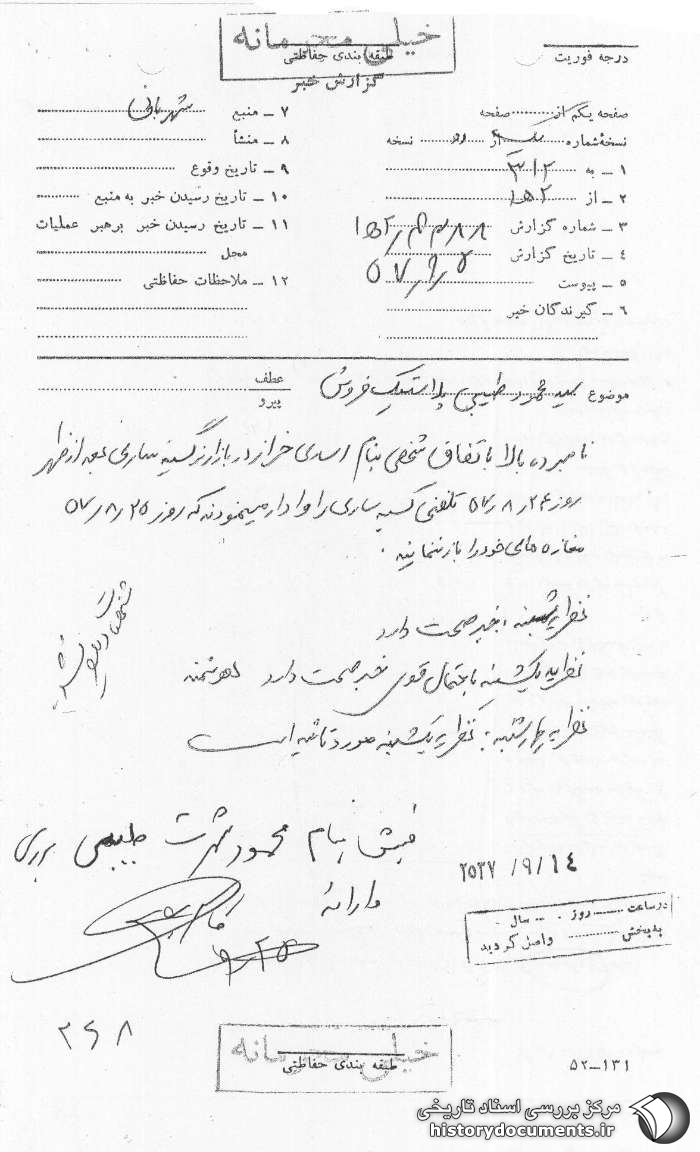 خیلی محرمانه
طبقه بندی حفاظتی
گزارش خبر
درجه فوریت
صفحه یکم از صفحه
نسخهٔ شماره از نسخه
۱ – به ۳۱۲
۲ – از ۱۵ ه‍ ۲
۳ – شماره گزارش
۴ – تاریخ گزارش ۵۷
۵ – پیوست
۶ – گیرندگان خبر
۷ – منبع شهربانی
۸ – منشأ
۹ – تاریخ وقوع
۱۰ – تاریخ رسیدن خبر به منبع
۱۱ – تاریخ رسیدن خبر برهبر عملیات
محل
۱۲ – ملاحظات حفاظتی
موضوع سید محمود طبیبی پلاستیک فروش
عطف
پیرو
نامبرده بالا باتفاق شخصی بنام اسدی خراز در بازار نرگسیه ساری بعد از ظهر
روز ۲۴ر۸ر۵۷ تلفنی کسبه ساری را وادار مینمودند که روز ۲۵ر۸ر۵۷
مغازه های خود را باز ننمایند .
نظریه شنبه : خبر صحت دارد
نظریه یکشنبه باحتمال قوی خبر صحت دارد هوشمند
نظریه چهارشنبه : نظریه یکشنبه مورد تائید است
فیش بنام محمود شهرت طبیبی بررسی
و ارائه
۲۵۳۷/۹/۱۴
در ساعت روز سال
به بخش واصل گردید
۲۶۸
خیلی محرمانه
طبقه بندی حفاظتی
۵۲–۱۳۱
مرکز بررسی اسناد تاریخی
historydocuments.ir